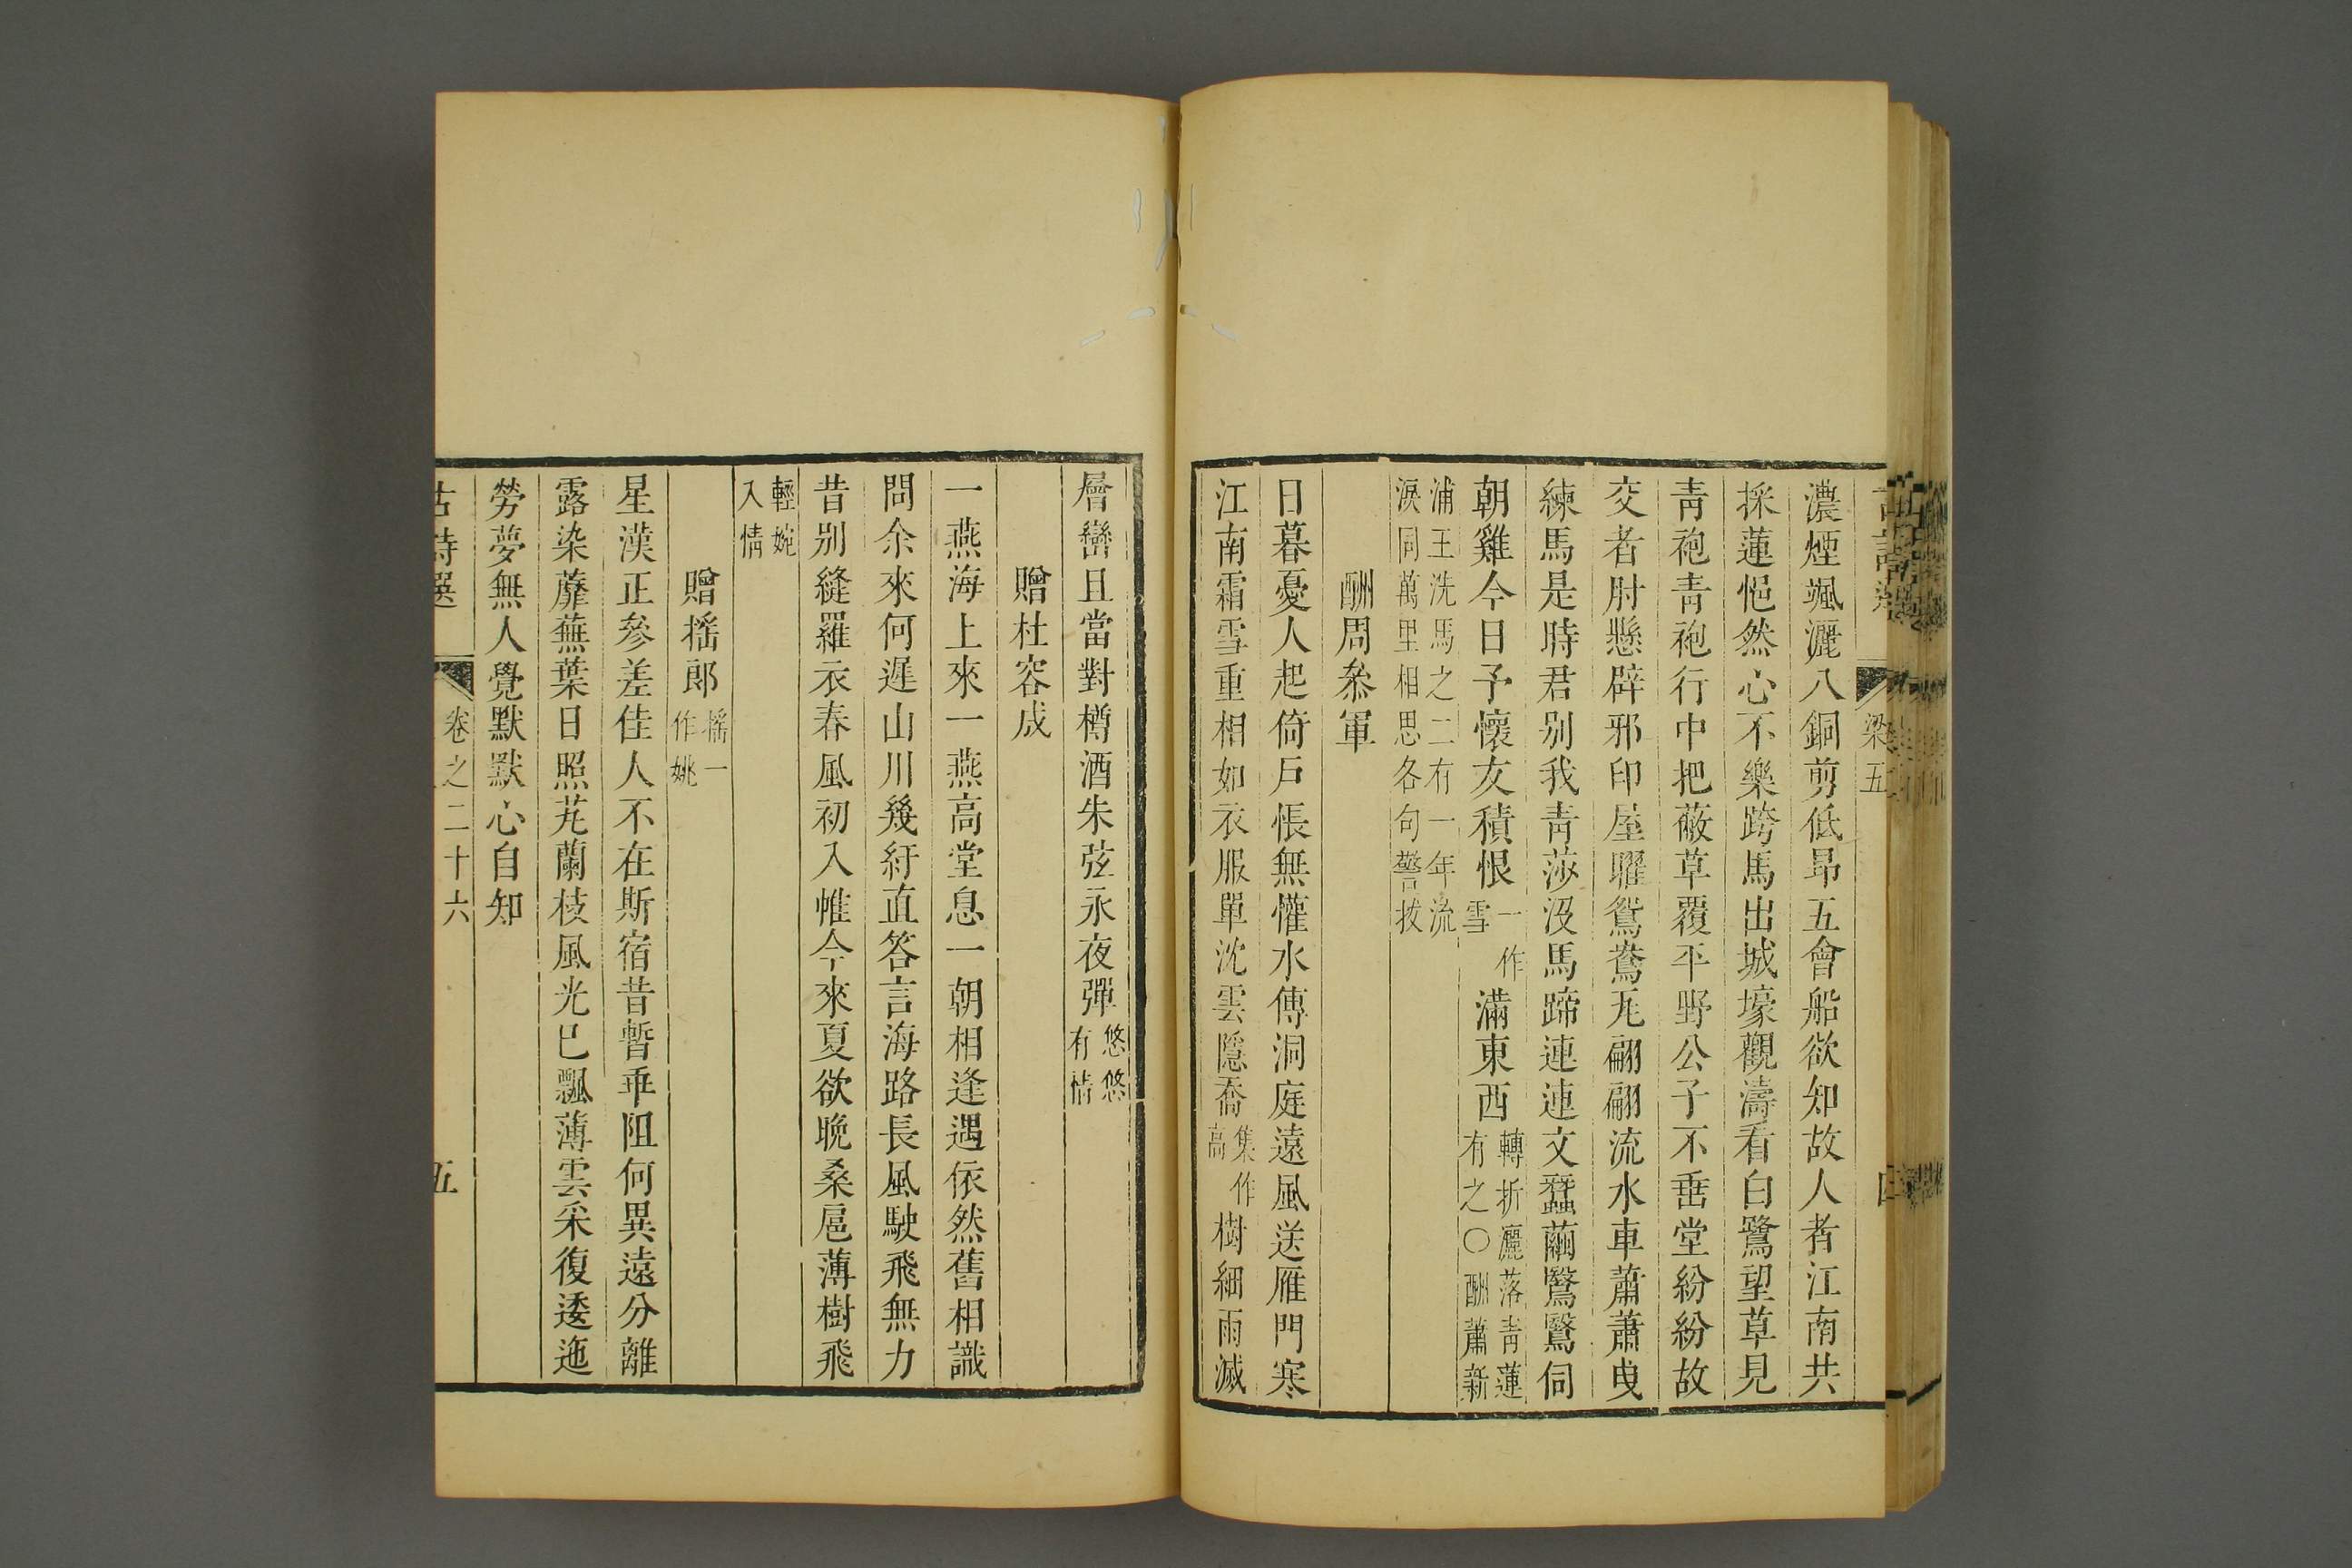 梁五
濃煙颯灑八銅剪低昂五會船欲知故人者江南共
採蓮悒然心不樂跨馬出城壕觀濤看白鷺望草見
青袍青袍行中把蔽草覆平野公子不垂堂紛紛故
交者肘懸辟邪印屋曜鴛鴦瓦翩翩流水車蕭蕭曳
練馬是時君别我青莎没馬蹄連連文蠶繭鷖鷖伺
朝雞今日予懷友積恨一作雪滿東西轉折灑落青蓮有之〇酬蕭新
浦王洗馬之二有一年流淚同萬里相思各句警拔
酬周叅軍
日暮憂人起倚户悵無懽水傳洞庭遠風送雁門寒
江南霜雪重相如衣服單沈雲隱喬集作高樹細雨滅
層巒且當對樽酒朱弦永夜彈悠悠有情
贈杜容成
一燕海上來一燕高堂息一朝相逢遇依然舊相識
問余來何遲山川幾紆直答言海路長風駛飛無力
昔别縫羅衣春風初入帷今來夏欲晚桑扈薄樹飛
輕婉入情
贈搖郎搖一作姚
星漢正參差佳人不在斯宿昔暫乖阻何異遠分離
露染蘼蕪葉日照芄蘭枝風光已飄薄雲采復逶迤
勞夢無人覺默默心自知
古詩選 卷之二十六 五